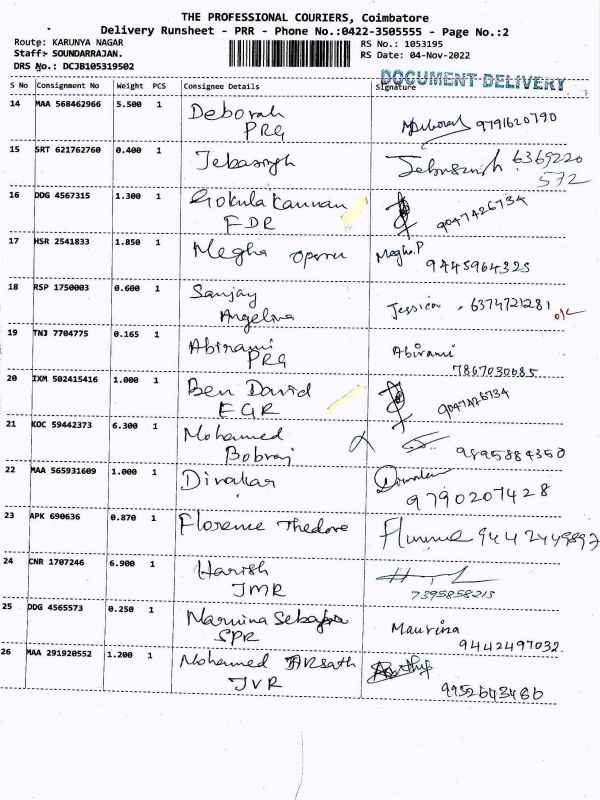 THE PROFESSIONAL COURIERS, Coimbatore
Delivery Runsheet - PRR - Phone No.:0422-3505555 - Page No.:2
Route: KARUNYA NAGAR RS No.: 1053195
Staff: SOUNDARRAJAN. RS Date: 04-Nov-2022
DRS No.: DCJB105319502
DOCUMENT DELIVERY
S No Consignment No Weight PCS Consignee Details Signature
14 MAA 568462966 5.500 1 Deborah 9791620790
PRG
15 SRT 621762760 0.400 1 Jebasingh 6369220
572
16 DDG 4567315 1.300 1 Gokula Kannan 9047426734
FDR
17 HSR 2541833 1.850 1 Megha Megha.P
9445964325
18 RSP 1750003 0.600 1 Sanjay Jessica . 6374721281
Angelina
19 TNJ 7704775 0.165 1 Abirami Abirami
PRG 7867030685
20 IXM 502415416 1.000 1 Ben David 9047426734
EGR
21 KOC 59442373 6.300 1 Mohamed 9895884350
Bobraj
22 MAA 565931609 1.000 1 Divakar
9790207428
23 APK 690636 0.870 1 Florence Thedore 9442449897
24 CNR 1707246 6.900 1 Harish
JMR 7395858213
25 DDG 4565573 0.250 1 Maurina
SPR 9442497032
26 MAA 291920552 1.200 1 Mohamed Arsath
JVR 9952643466